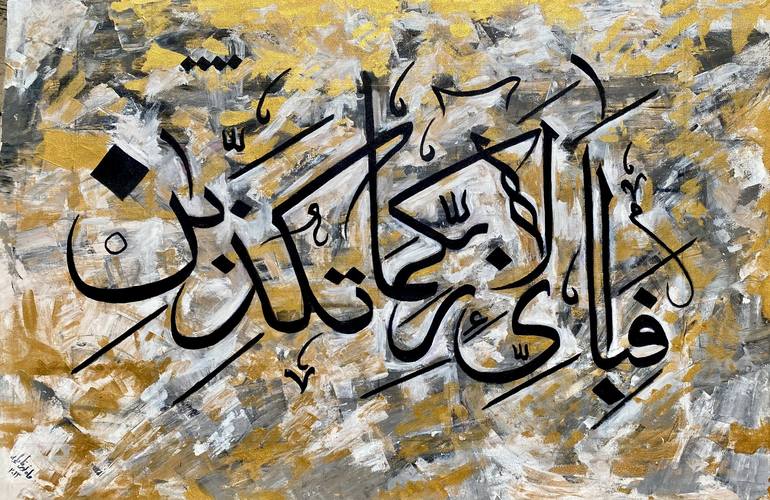 فَبِأَىِّ آلَاءِ رَبِّكُمَا تُكَذِّبٰنِ